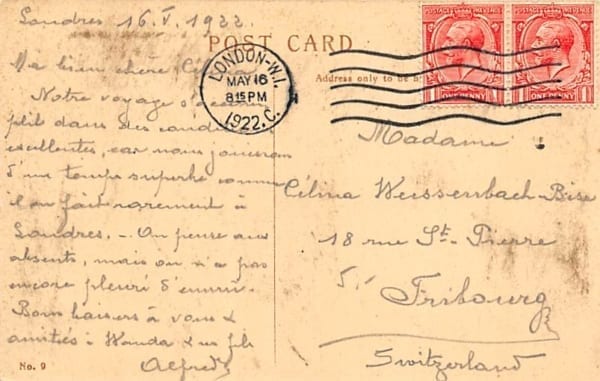 Londres 16. V. 1922.
POST CARD
Ma bien chère
Address only to be
Notre voyage s'accom
plit dans des condi
excellentes, car nous jouissons
d'un temps superbe comme
il en fait rarement à
Londres. — On pense aux
absents, mais on n'a pas
encore pleuré d'ennui.
Bons baisers à vous &
amitiés à Wanda & ses fils
Alfred
No. 9
LONDON-W.1.
MAY 16
8.15 PM
1922.C.
POSTAGE REVENUE
ONE PENNY
POSTAGE REVENUE
ONE PENNY
Madame
Célina Weissenbach-Bise
18 rue St-Pierre
Fribourg
Switzerland